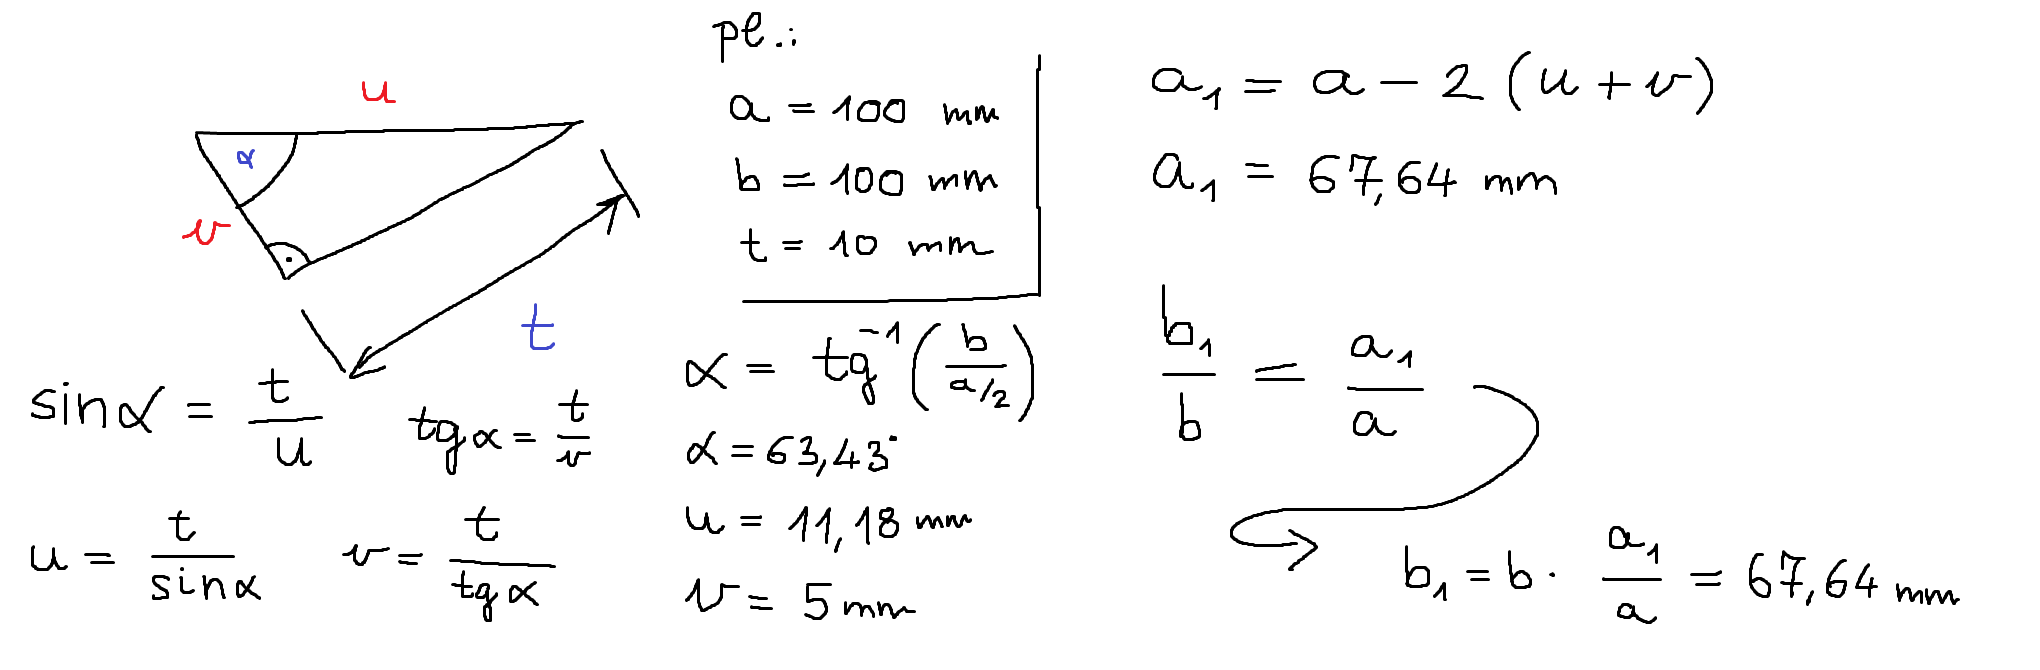 u
α
v
t
sinα = t/u
tgα = t/v
u = t/sinα
v = t/tgα
pl.:
a = 100 mm
b = 100 mm
t = 10 mm
α = tg⁻¹(b/(a/2))
α = 63,43°
u = 11,18 mm
v = 5 mm
a₁ = a - 2(u + v)
a₁ = 67,64 mm
b₁/b = a₁/a
b₁ = b · a₁/a = 67,64 mm